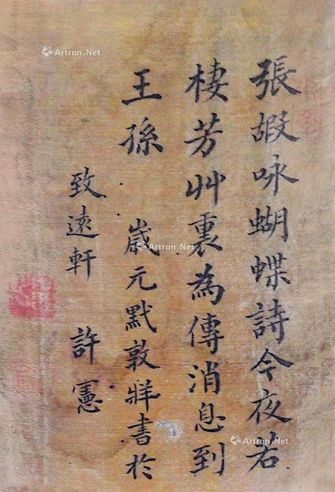 張嘏咏蝴蝶詩今夜若
棲芳艸裏為傳消息到
王孫 歲元黓敦牂書於
致遠軒 許憲
Artron.Net
Artron.Net
Artron.Net